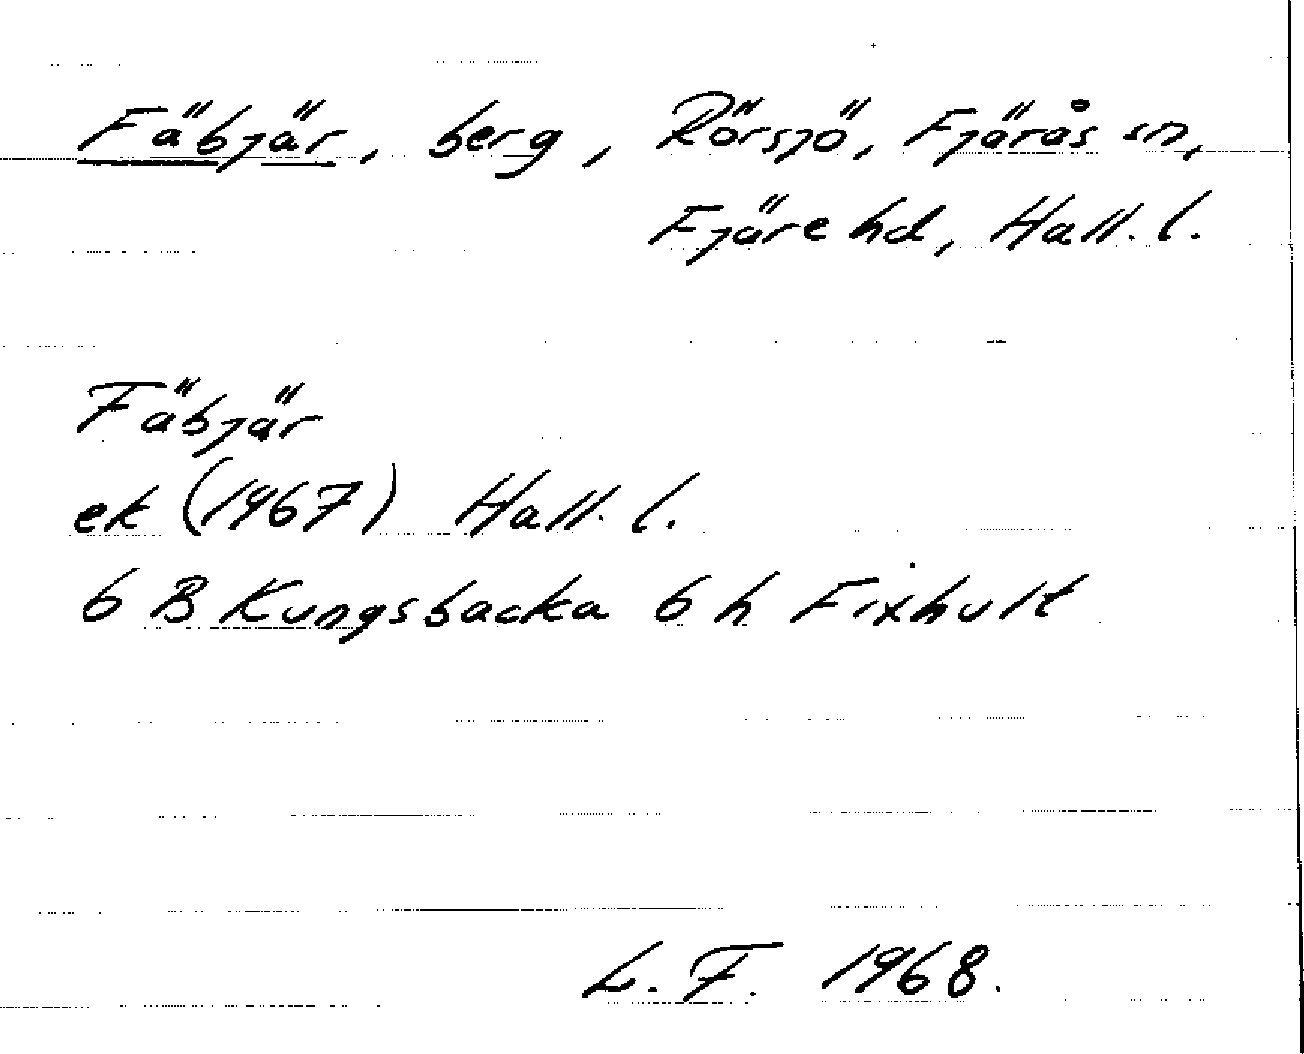 Fäbjär, berg, Rörsjö, Fjärås sn,
Fjäre hd, Hall. l.
Fäbjär
ek (1967) Hall. l.
6 B Kungsbacka 6 h Fixhult
L. F. 1968.